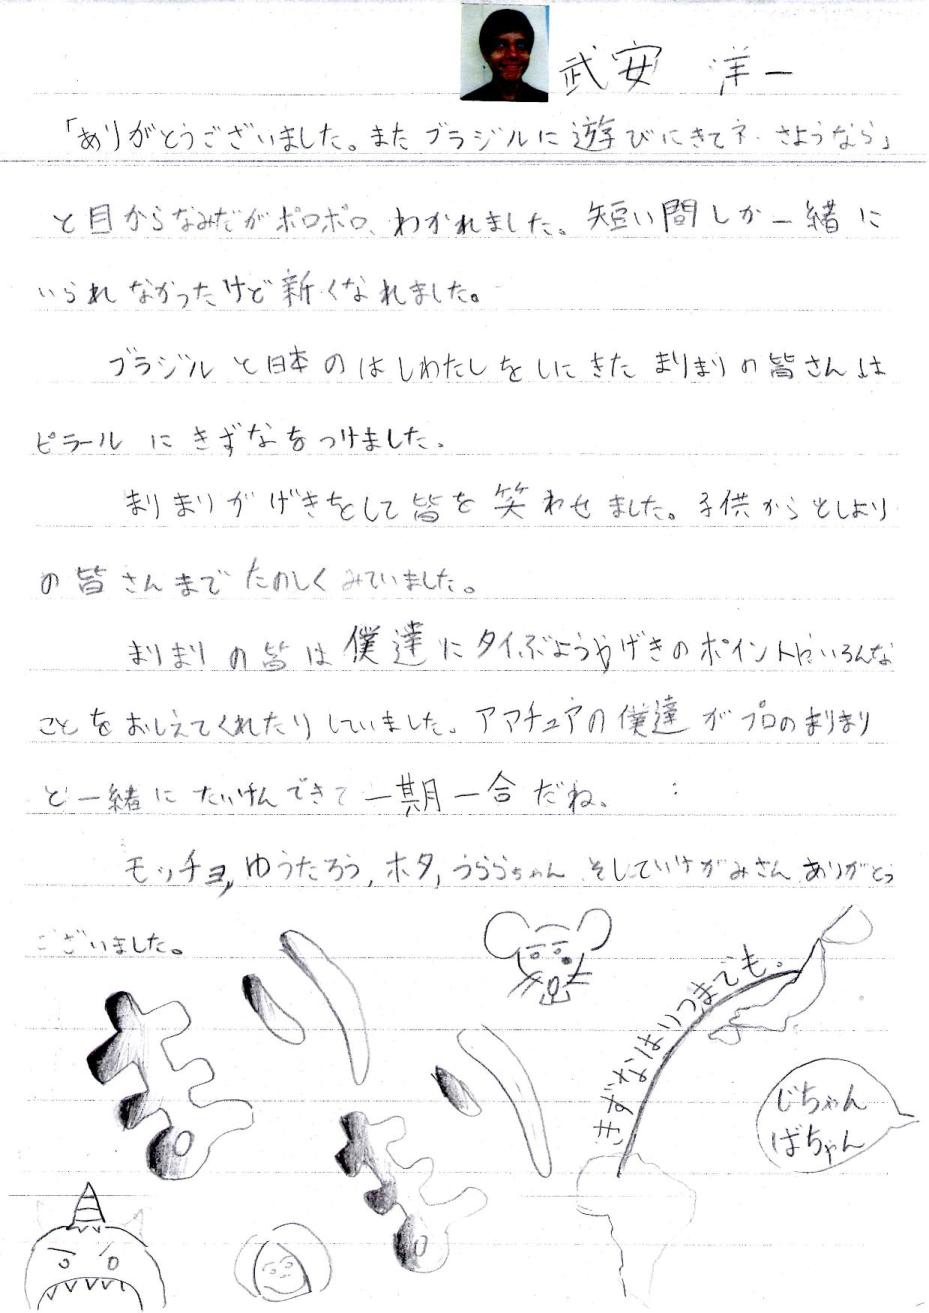 武安 洋一
「ありがとうございました。またブラジルに遊びにきてネ. さようなら」
と目からなみだがポロポロ、わかれました。短い間しか一緒に
いられなかったけど新くなれました。
ブラジルと日本のはしわたしをしにきたまりまりの皆さんは
ピラールにきずなをつけました.
まりまりがげきをして皆を笑わせました。子供からとしより
の皆さんまでたのしくみていました。
まりまりの皆は僕達にタイぶようやげきのポイントやいろんな
ことをおしえてくれたりしていました。アマチュアの僕達がプロのまりまり
と一緒にたいけんできて一期一合だね、
モッチョ, ゆうたろう, ホタ, うららちゃん そしていけがみさん ありがとう
ございました。
まりまり
きずなはいつまでも。
じちゃん
ばちゃん